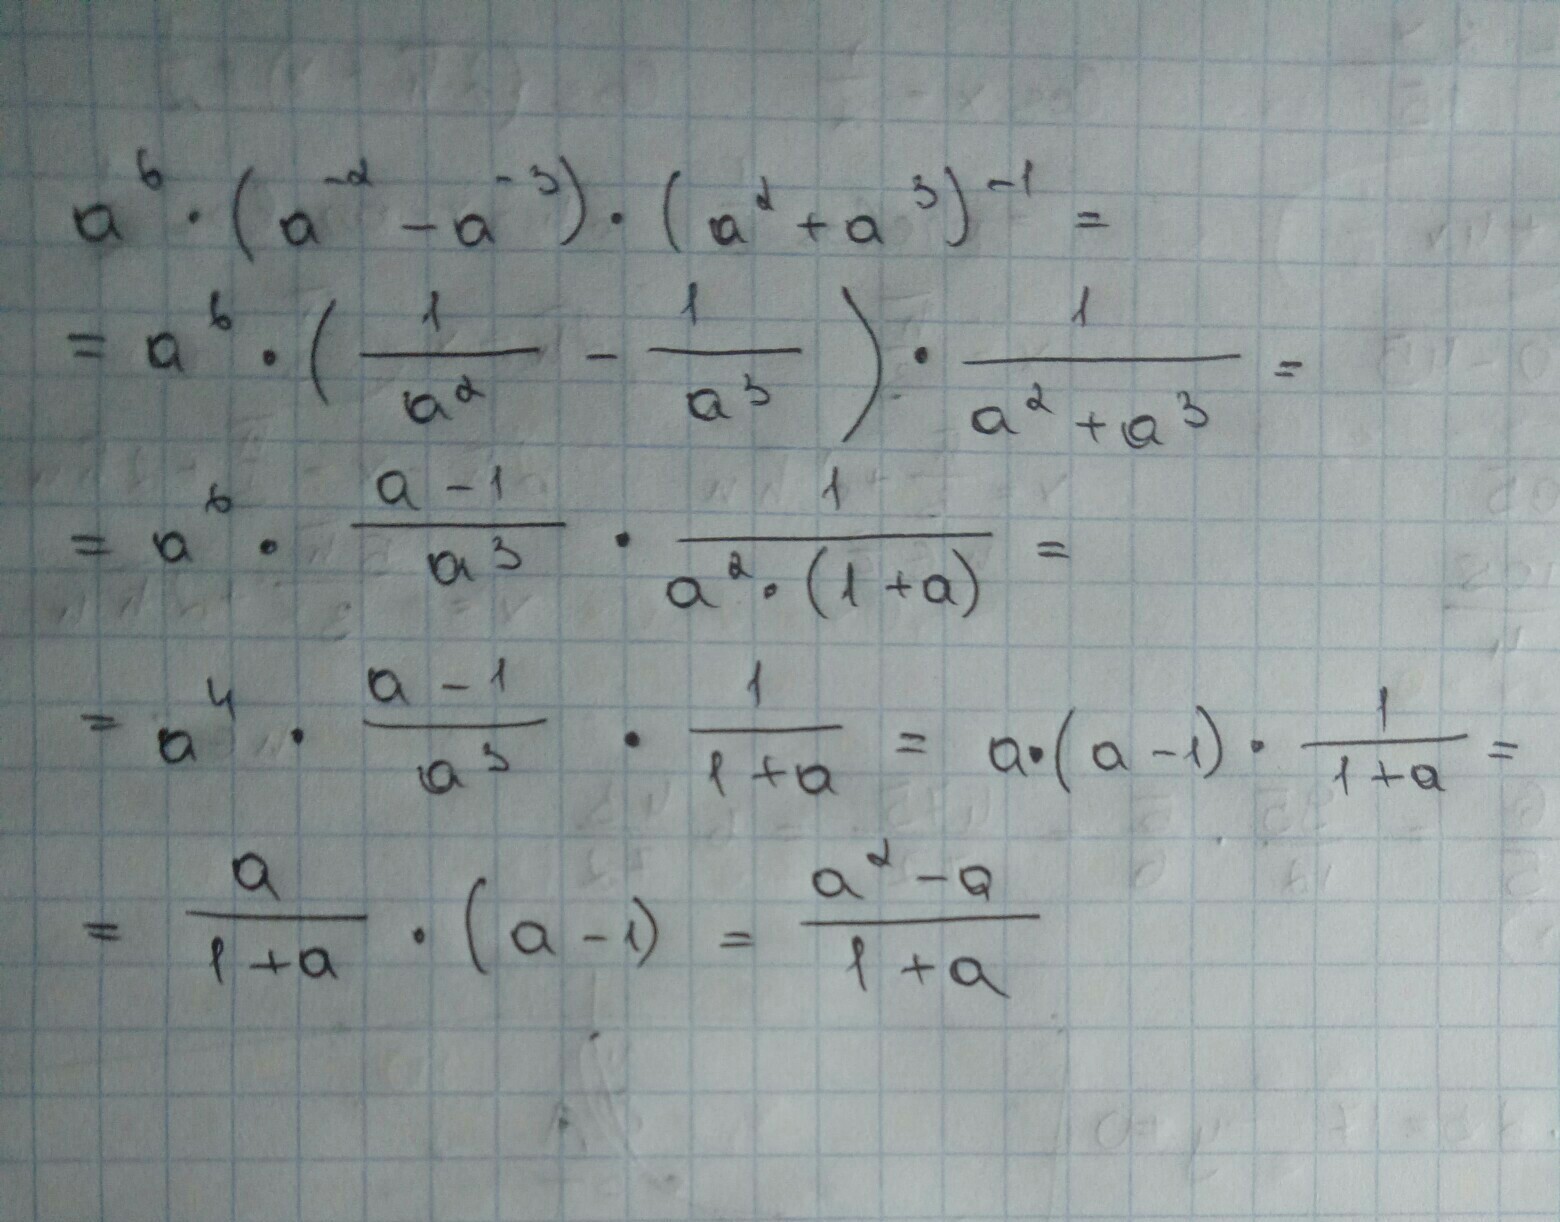 a⁶ · (a⁻² - a⁻³) · (a² + a³)⁻¹ =
= a⁶ · (1/a² - 1/a³) · 1/(a² + a³) =
= a⁶ · (a - 1)/a³ · 1/(a² · (1 + a)) =
= a⁴ · (a - 1)/a³ · 1/(1 + a) = a · (a - 1) · 1/(1 + a) =
= a/(1 + a) · (a - 1) = (a² - a)/(1 + a)